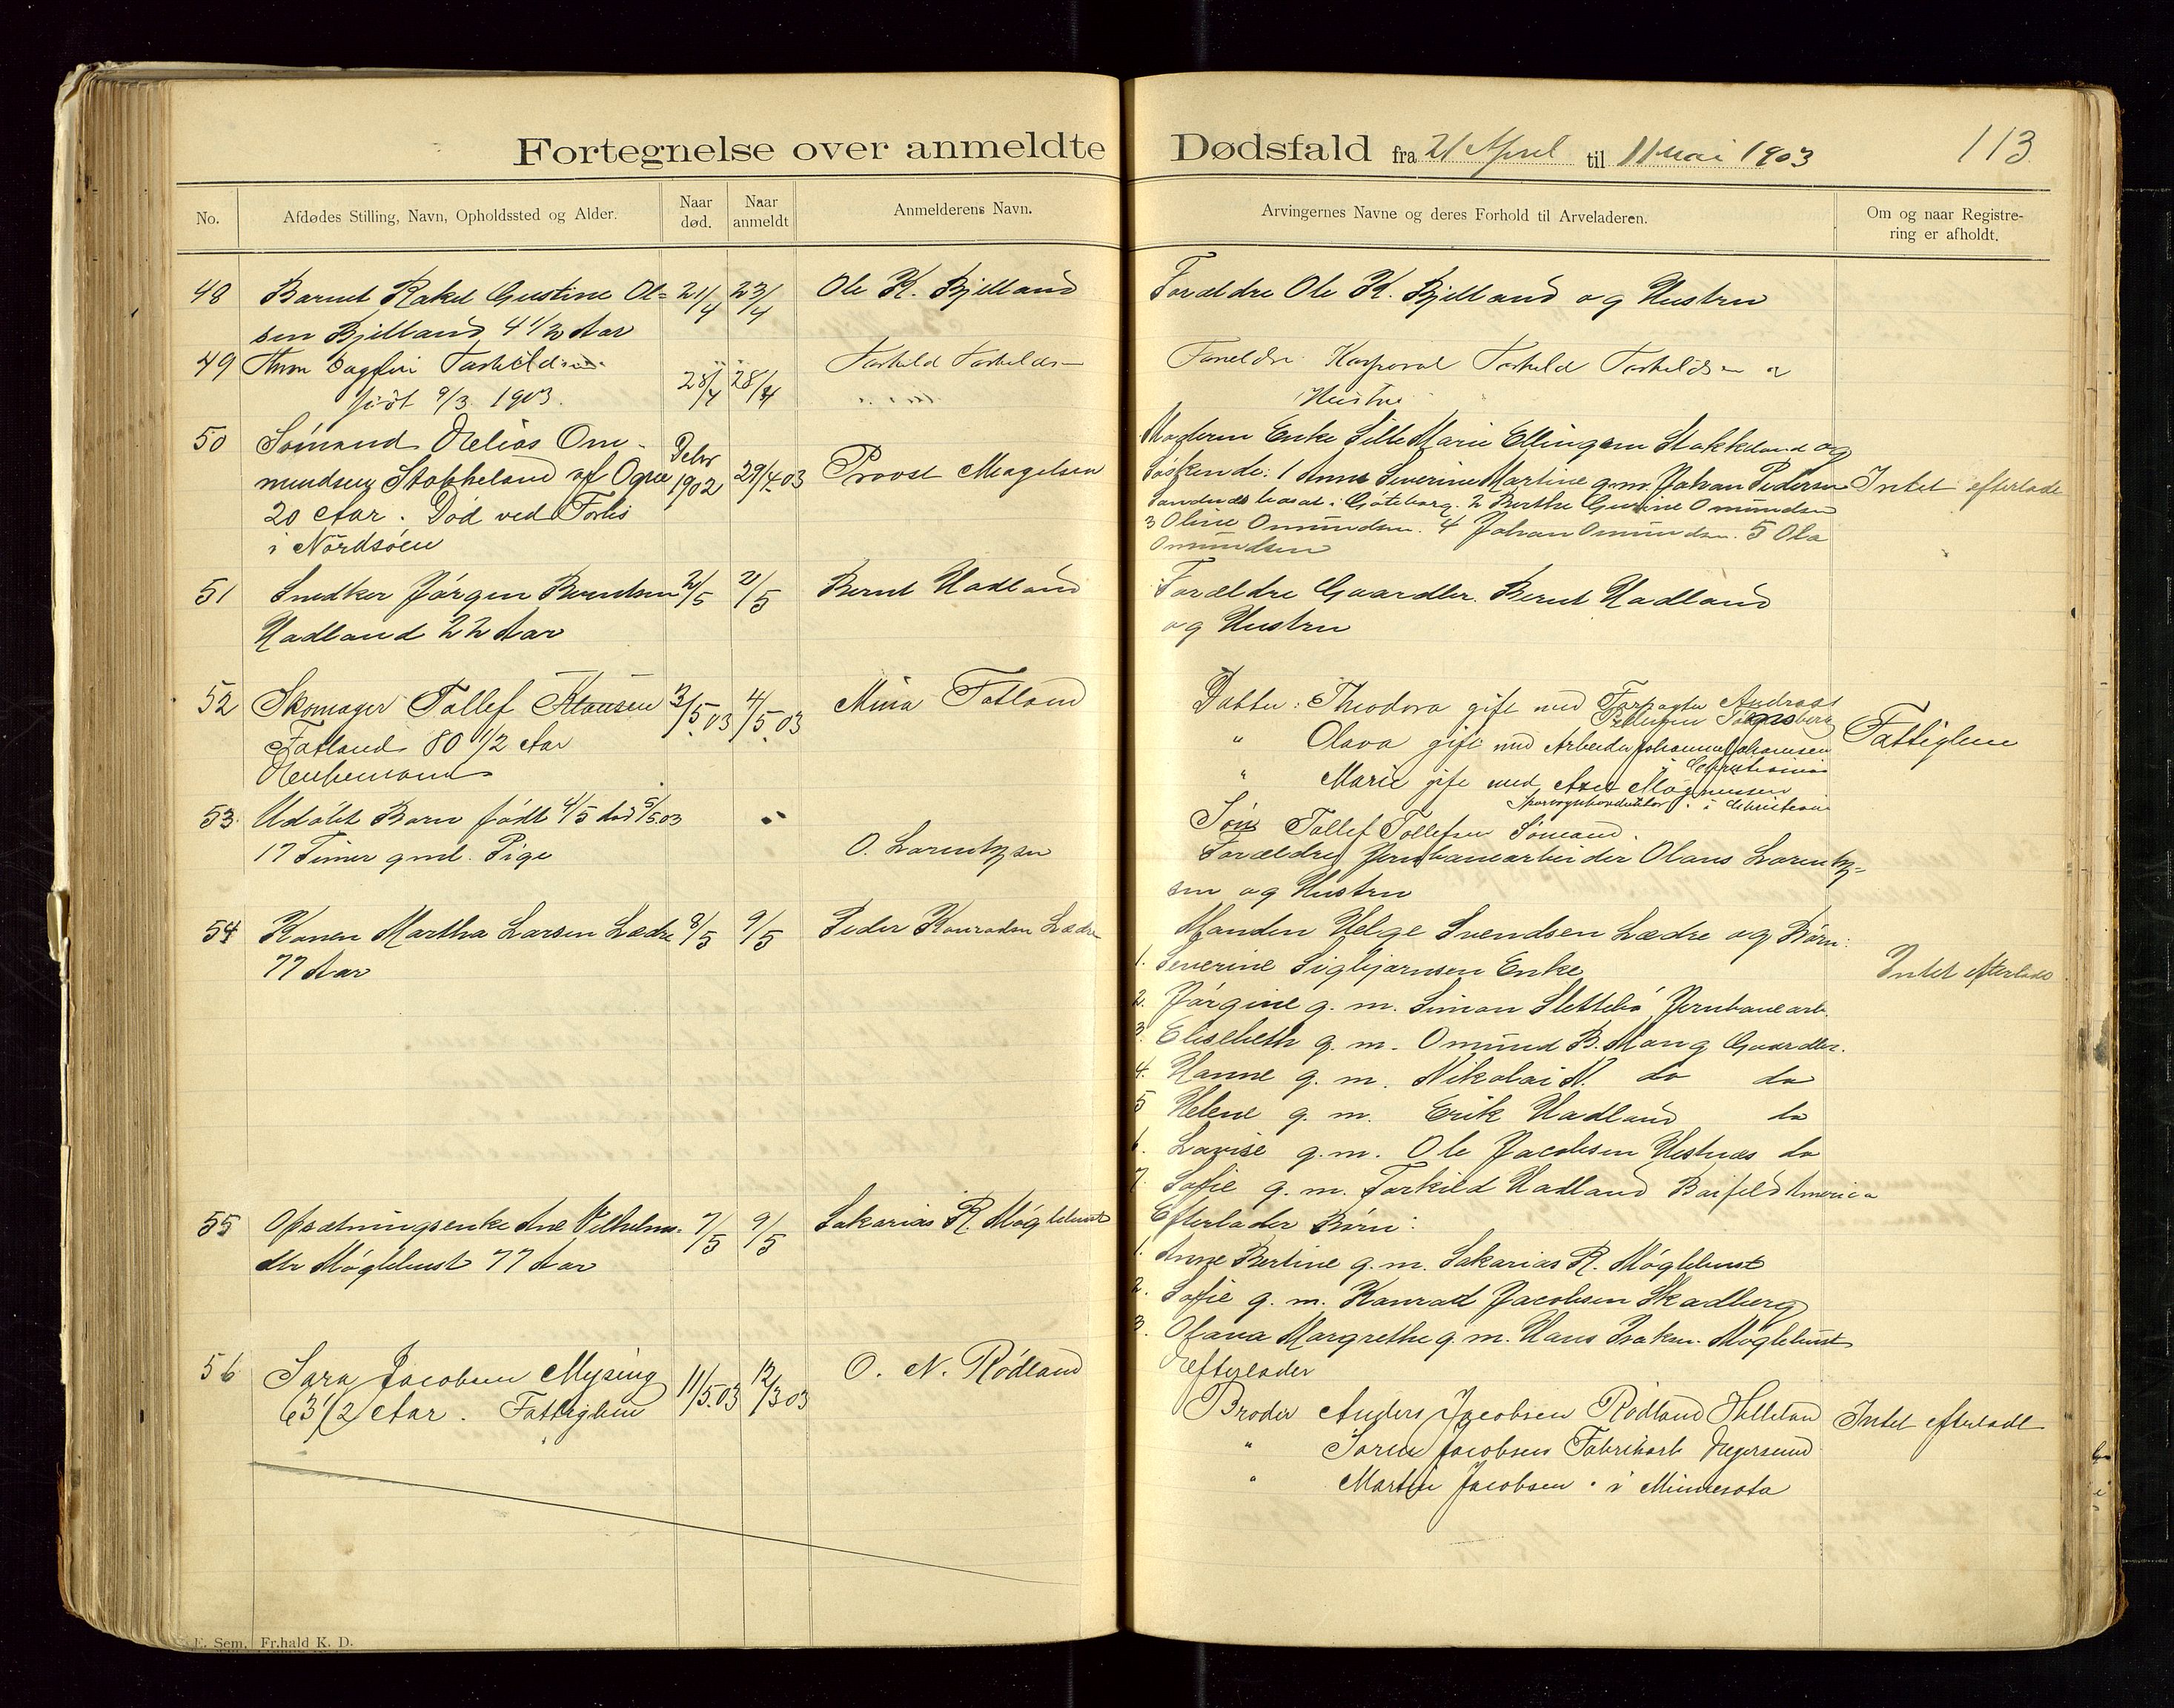 Fortegnelse over anmeldte Dødsfald fra 21 April til 11 Mai 1903
113
No.
Afdødes Stilling, Navn, Opholdssted og Alder.
Naar død.
Naar anmeldt
Anmelderens Navn.
Arvingernes Navne og deres Forhold til Arveladeren.
Om og naar Registrering er afholdt.
48 Barnet Rakel Gustine Ol= 21/4 23/4 Ole K. Bjelland Forældre Ole K. Bjelland og Hustru
sen Bjelland 4 1/2 Aar
49 Dagfin Torkildsen 28/4 28/4 Torkild Torkildsen Forældre Korporal Torkild Torkildsen og
født 9/3 1903. Hustru
50 Sømand Elias Om- Moderen Enke Sille Marie Ellingsen Stokkeland og
mundsen Stokkeland af Ogne Debr 1902 29/4 03 Provst Magelsen Søskende: 1 Anne Severine Martine g.m. Johan Pedersen Intet efterladt
20 Aar. Død ved Forlis bosat i Gøteborg. 2 Berthe Gurine Omundsen
i Nordsøen 3 Oline Omundsen. 4 Johan Omundsen. 5 Ola
Omundsen
51 Snedker Jørgen Berntsen 2/5 2/5 Bernt Hadland Forældre Gaardbr. Bernt Hadland
Hadland 22 Aar og Hustru
52 Skomager Tollef Klausen 3/5.03 4/5.03 Mina Fotland Datter: Theodora gift med Forpagter Andreas
Pedersen
Fotland 80 1/2 Aar " Olava gift med Arbeider Johannes Johannesen Fattiglem
i Christiania
" Marie gift med Axel Magnussen
Sporvognskonduktør i Christiania
53. Udøbt Barn født 4/5 død 5/5.03 " Søn Tollef Tollefsen Sømand.
17 Timer gml. Pige O. Lorentzen Forældre Jernbanearbeider Olaus Lorentz=
sen og Hustru
54 Konen Martha Larsen Lædre 8/5 9/5 Peder Konradsen Lædre Manden Helge Svendsen Lædre og Børn:
77 Aar 1. Severine Sigbjørnsen Enke Intet efterladt
2. Jørgine g. m. Simon Slettebø, Jernbanearb.
3. Elisebeth g. m. Omund B. Mong Gaardbr.
4. Hanne g. m. Nikolai N. do do
5 Helene g. m. Erik Hadland do
6. Lovise g. m. Ole Jacobsen Hestnæs do
7. Sofie g. m. Torkild Hadland America
55 Opsætningsenke Ane Vilhelms- 7/5 9/5 Sakarias R. Møglebust Efterlader Børn:
dtr Møglebust 77 Aar 1. Anne Bertine g. m. Sakarias R. Møglebust
2. Sofie g. m. Konrad Jacobsen Skadberg
3. Olava Margrethe g. m. Hans Isaksn. Møglebust
56 Sara Jacobsen Mysing 11/5.03 12/3 03 O. N. Rødland Efterlader
63 1/2 Aar. Fattiglem Broder Anders Jacobsen Rødland Helleland Intet efterladt
" Søren Jacobsen Fabrikarb Egersund
" Martin Jacobsen i Minnesota
E. Sem, Fr.hald K. D.